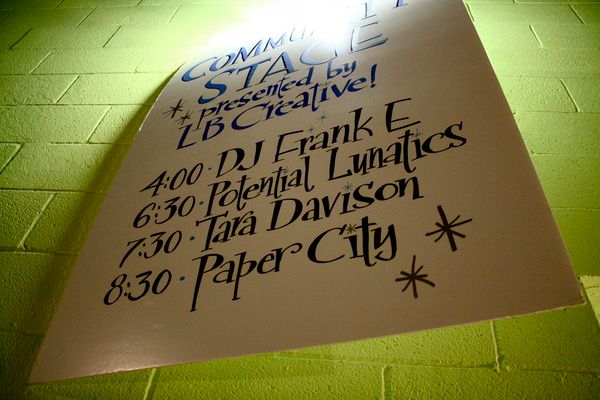 COMMUNITY
STAGE
* presented by
* LB Creative!
4:00 · DJ Frank E
6:30 · Potential Lunatics
7:30 · Tara Davison
8:30 · Paper City